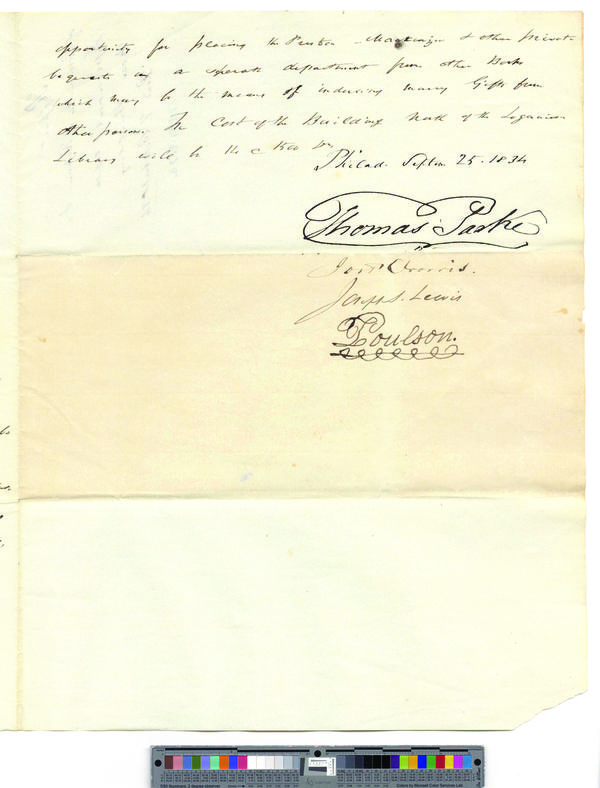 opportunity for placing the Preston Mackenzie & other private
bequests in a separate department from other Books
which may be the means of inducing many Gifts from
other persons. The Cost of the Building North of the Loganian
Library will be
Philad. Septem 25. 1834
Thomas Parke
Jos. P. Norris.
Joseph S. Lewis
Poulson.